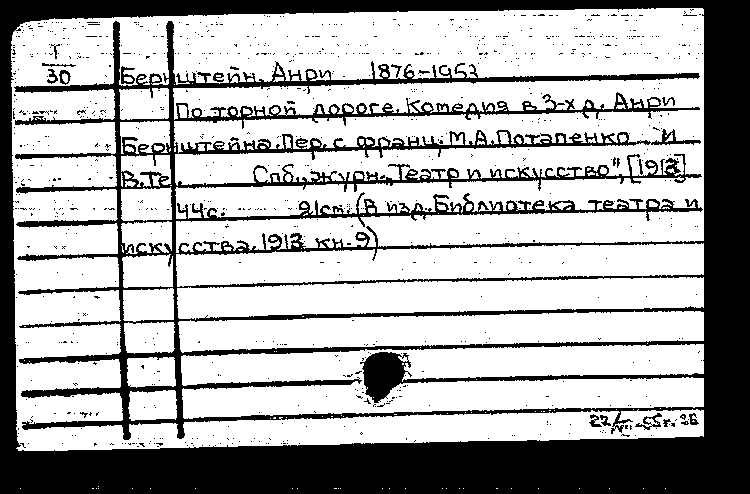 1
30
Бернштейн, Анри 1876-1953
По торной дороге. Комедия в 3-х д. Анри
Бернштейна. Пер. с франц. М.А.Потапенко и
В.Те. Спб., журн. "Театр и искусство", [1913]
44с. 21см. (В изд. Библиотека театра и
искусства. 1913 кн. 9)